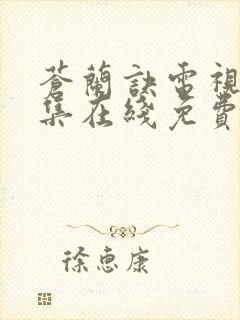 蒼蘭訣電視
集在綫免費
徐惠康